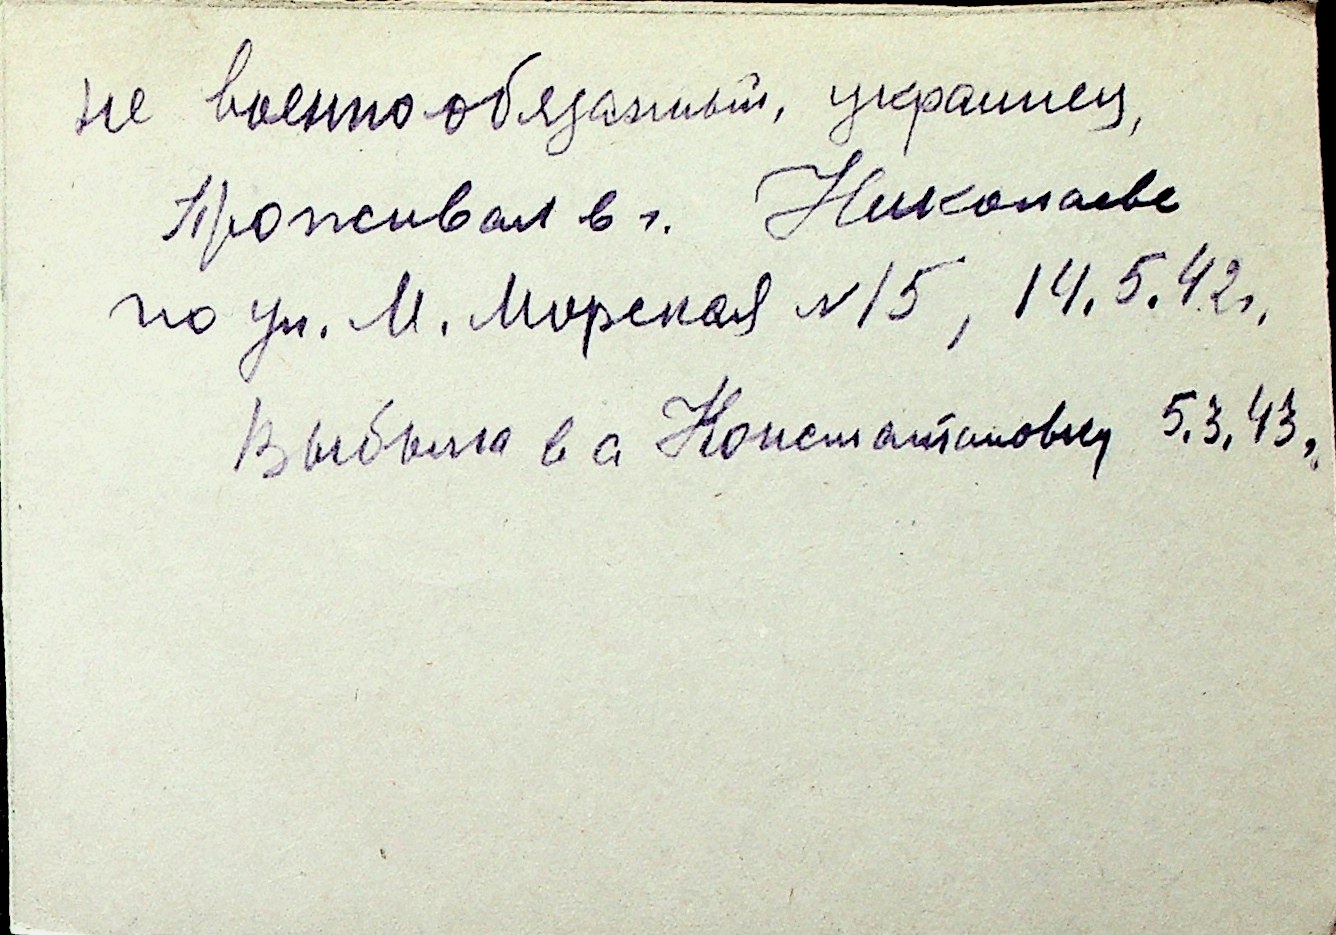 не военнообязанный, украинец,
Проживал в г. Николаеве
по ул. М. Морская №15, 14.5.42г.
Выбыла в с Константиновку 5.3.43,